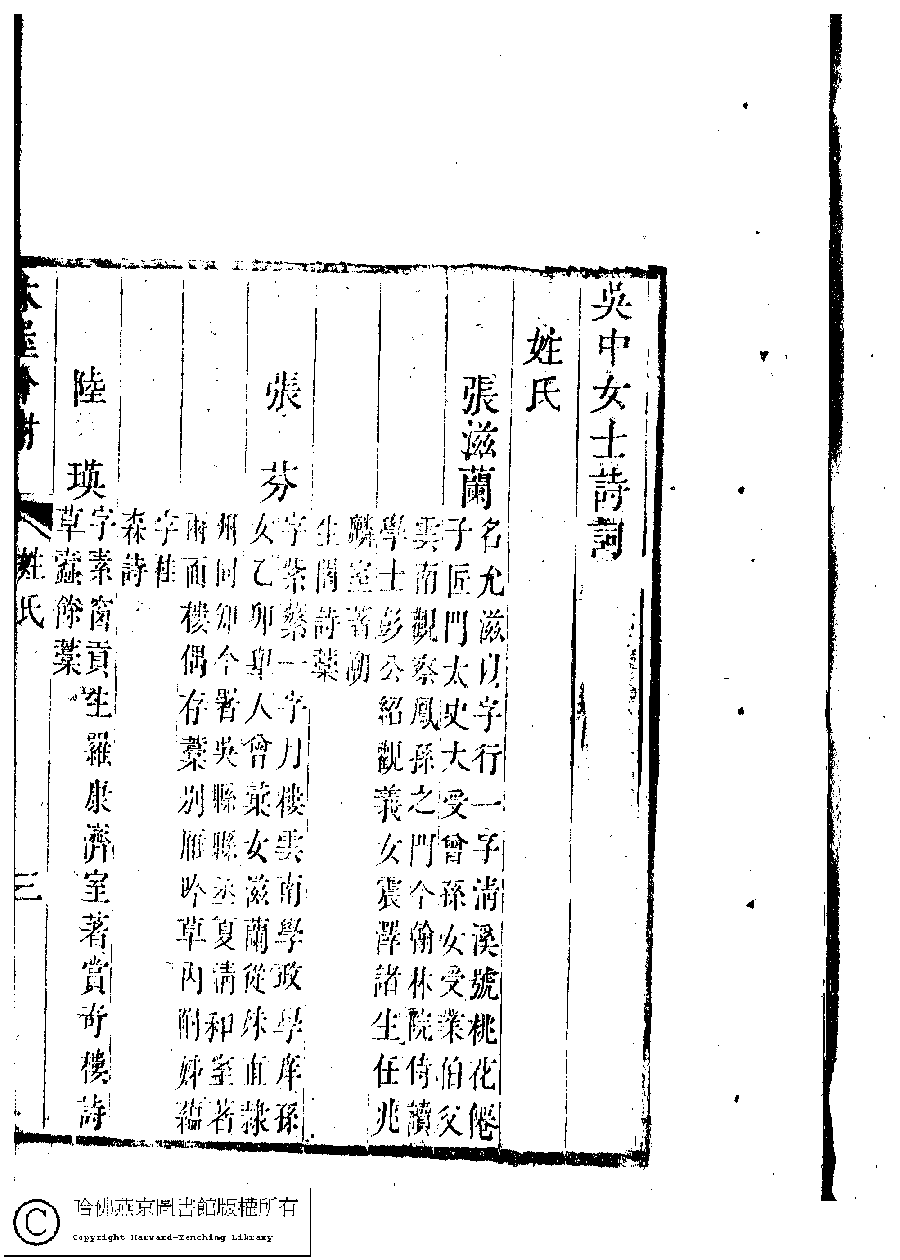 吳中女士詩詞
姓氏
張滋蘭
名允滋以字行一字清溪號桃花僊
子匠門太史大受曾孫女受業伯父
雲南觀察鳳孫之門今翰林院侍讀
學士彭公紹觀義女震澤諸生任兆
麟室著潮
生閣詩藁
張芬
字紫蘩一字月樓雲南學政學庠孫
女乙卯舉人曾彙女滋蘭從妹直隸
州同知今署吳縣縣丞夏清和室著
兩面樓偶存藁別雁吟草內附婢蘊
字桂
森詩
陸瑛
字素窗貢生羅康濟室著賞奇樓詩
草蠹餘藁
林屋吟榭
姓氏
三
哈佛燕京圖書館版權所有
Copyright Harvard-Yenching Library